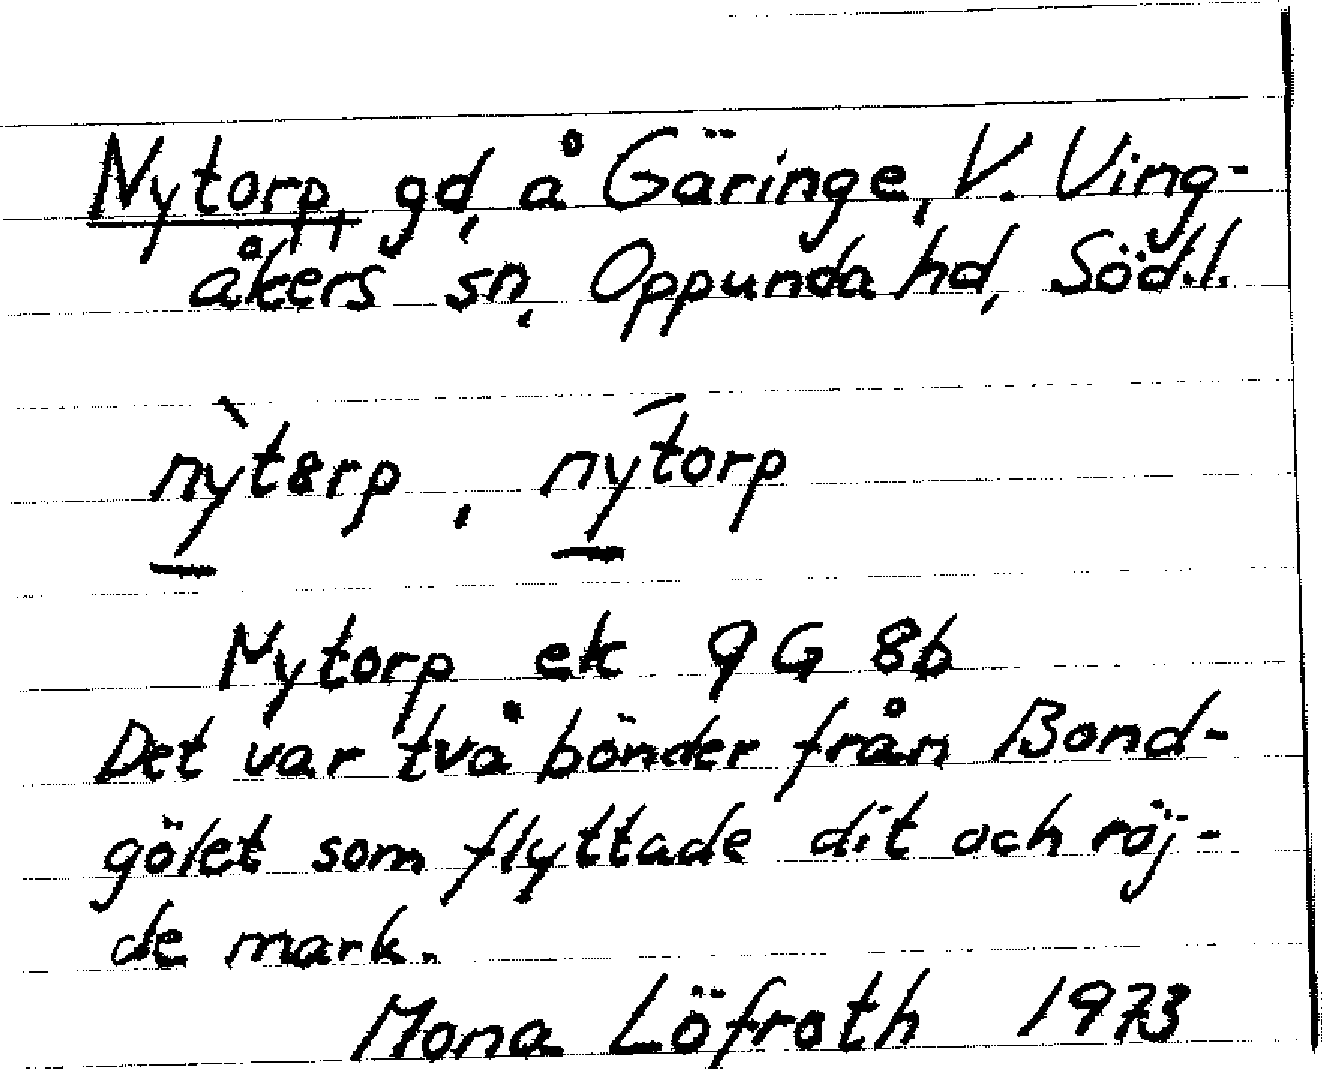 Nytorp, gd, å Gäringe, V. Ving-
åkers sn, Oppunda hd, Södl.
nỳtɵrp, nȳtorp
Nytorp ek 9G 8b
Det var två bönder från Bond-
gölet som flyttade dit och röj-
de mark.
Mona Löfroth 1973